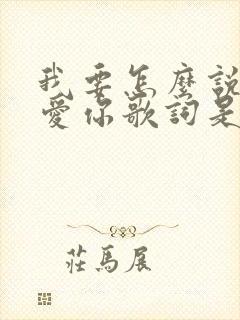 我要怎麼說
愛你歌詞是
莊馬展